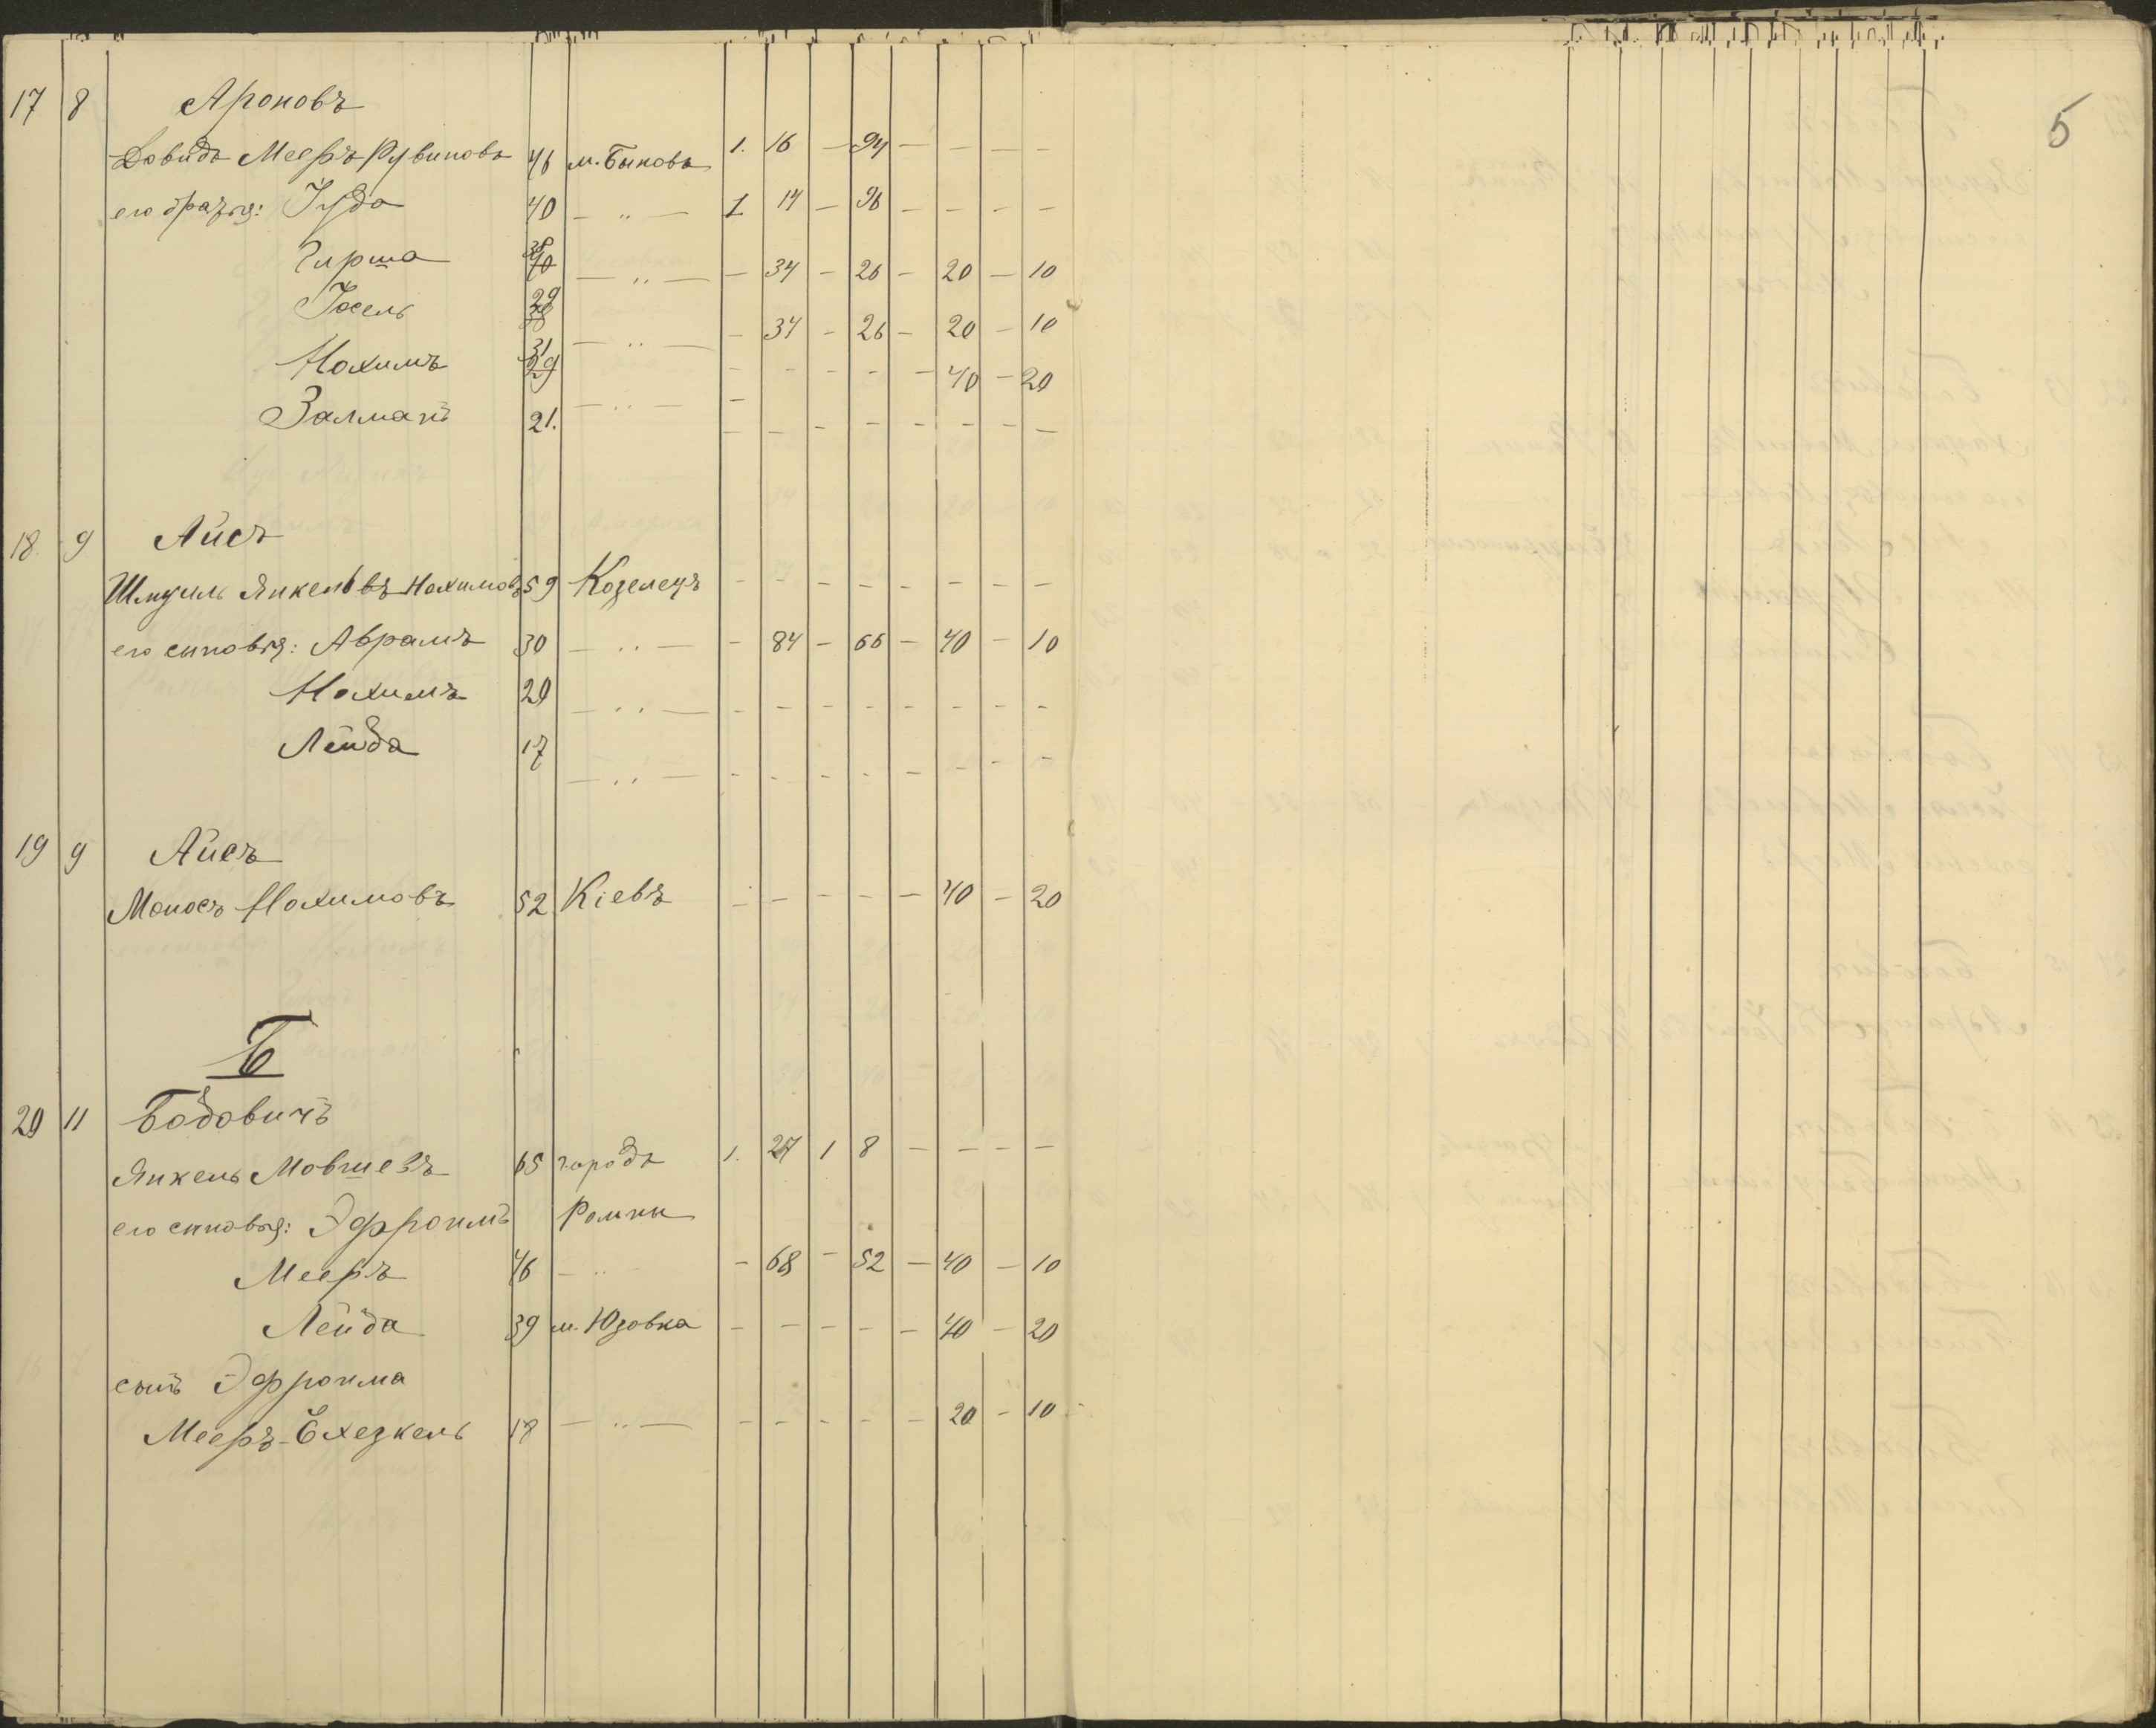 5
17 8 Ароновъ
Довидъ Мееръ Рувиновъ 46 м. Быковъ 1. 16 — 94 — — — —
его братья: Іуда 40 — „ — 1 14 — 96 — — — —
Гирша 38 40 — „ — — 34 — 26 — 20 — 10
Іосель 29 38 — „ — — 34 — 26 — 20 — 10
Нохимъ 31 29 — „ — — — — — — 40 — 20
Залманъ 21. — — — — — — — —
18 9 Айсъ
Шмуиль Янкелевъ Нохимовъ 59 Козелецъ — — — — — — — —
его сыновья: Абрамъ 30 — „ — — 84 — 66 — 40 — 10
Нохимъ 20 — „ — — — — — — — — —
Лейба 17 — „ — — — — — — — — —
19 9 Айсъ
Моносъ Нохимовъ 52 Кіевъ — — — — — 40 — 20
Б
20 11 Бодовичъ
Янкель Мовшевъ 65 городъ 1. 27 1 8 — — — —
его сыновья: Эфроимъ Ромны
Мееръ 46 — „ — 68 — 52 — 40 — 10
Лейба 39 м. Юзовка — — — — — 40 — 20
сынъ Эфроима
Мееръ-Ехезкель 18 — „ — — — — — — 20 — 10